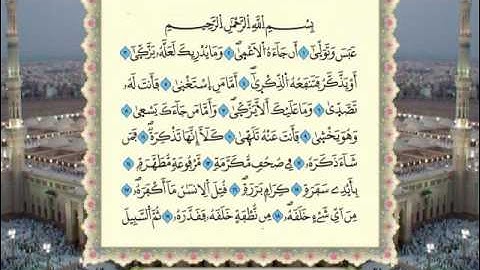 بِسْمِ اللَّهِ الرَّحْمَٰنِ الرَّحِيمِ
عَبَسَ وَتَوَلَّىٰ ١ أَن جَاءَهُ الْأَعْمَىٰ ٢ وَمَا يُدْرِيكَ لَعَلَّهُ يَزَّكَّىٰ ٣
أَوْ يَذَّكَّرُ فَتَنفَعَهُ الذِّكْرَىٰ ٤ أَمَّا مَنِ اسْتَغْنَىٰ ٥ فَأَنتَ لَهُ
تَصَدَّىٰ ٦ وَمَا عَلَيْكَ أَلَّا يَزَّكَّىٰ ٧ وَأَمَّا مَن جَاءَكَ يَسْعَىٰ ٨
وَهُوَ يَخْشَىٰ ٩ فَأَنتَ عَنْهُ تَلَهَّىٰ ١٠ كَلَّا إِنَّهَا تَذْكِرَةٌ ١١ فَمَن
شَاءَ ذَكَرَهُ ١٢ فِي صُحُفٍ مُّكَرَّمَةٍ ١٣ مَّرْفُوعَةٍ مُّطَهَّرَةٍ ١٤
بِأَيْدِي سَفَرَةٍ ١٥ كِرَامٍ بَرَرَةٍ ١٦ قُتِلَ الْإِنسَانُ مَا أَكْفَرَهُ ١٧
مِنْ أَيِّ شَيْءٍ خَلَقَهُ ١٨ مِن نُّطْفَةٍ خَلَقَهُ فَقَدَّرَهُ ١٩ ثُمَّ السَّبِيلَ